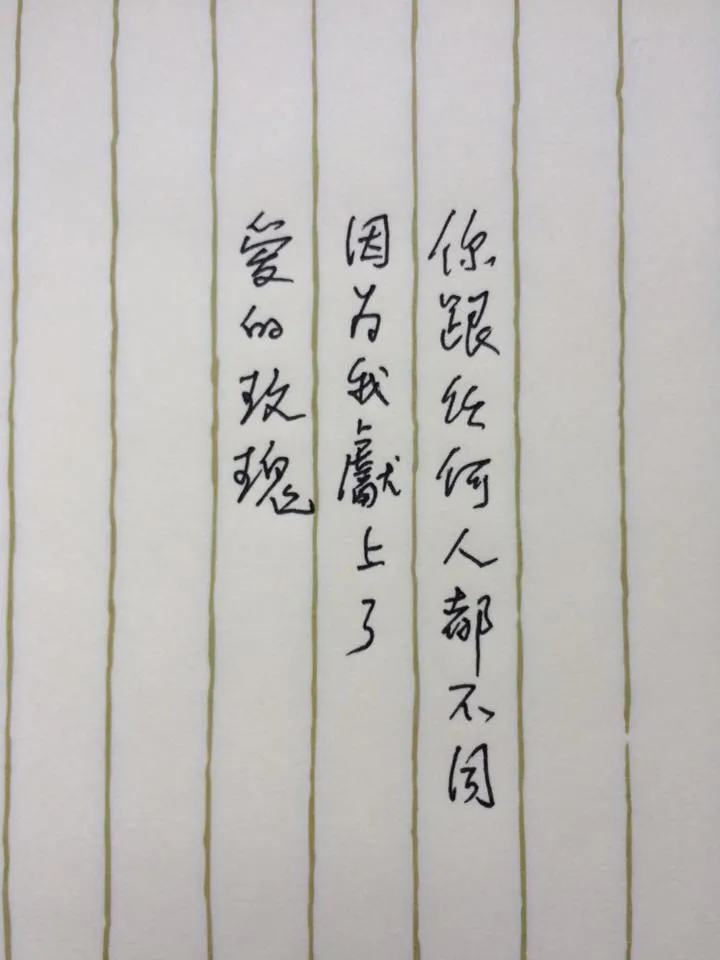 你跟任何人都不同
因为我獻上了
愛的玫瑰